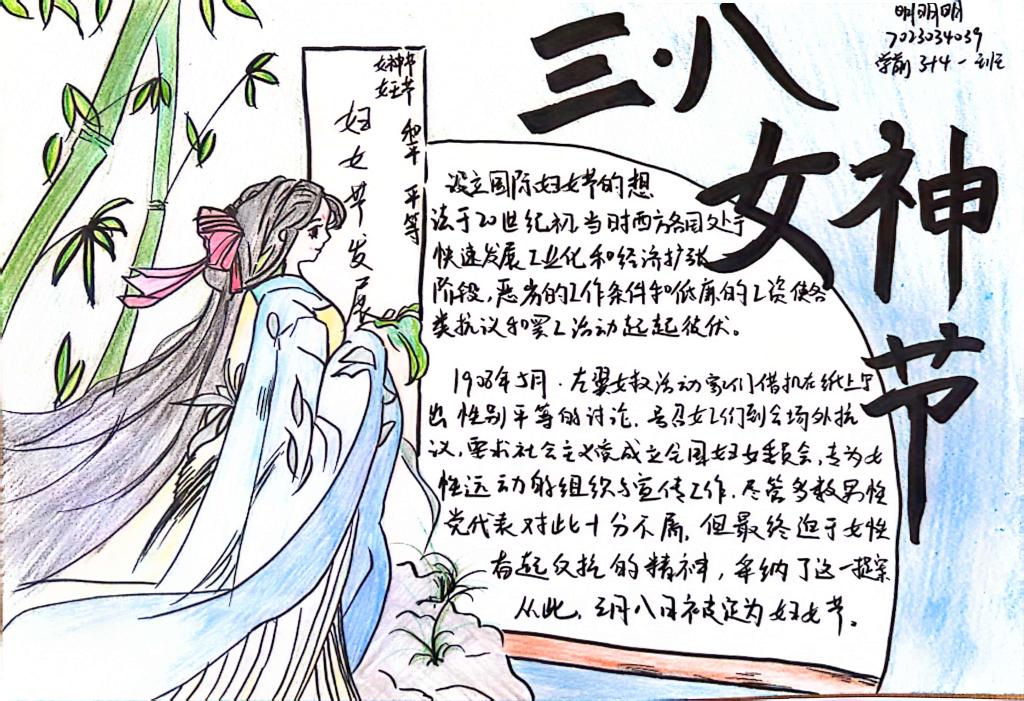 三·八
女神节
明明明
7023034039
学前3+4一班
女神节
女王节
和平 平等
妇女节发展
设立国际妇女节的想
法于20世纪初,当时西方各国处于
快速发展工业化和经济扩张
阶段,恶劣的工作条件和低廉的工资使各
类抗议和罢工活动起起彼伏。
1908年5月,左翼女权活动家们借机在纸上
出性别平等的讨论,号召女工们到会场外抗
议,要求社会主义党成立全国妇女委员会,专为女
性运动的组织与宣传工作,尽管多数男性
党代表对此十分不屑,但最终迫于女性
奋起反抗的精神,采纳了这一提案
从此,三月八日被定为妇女节。